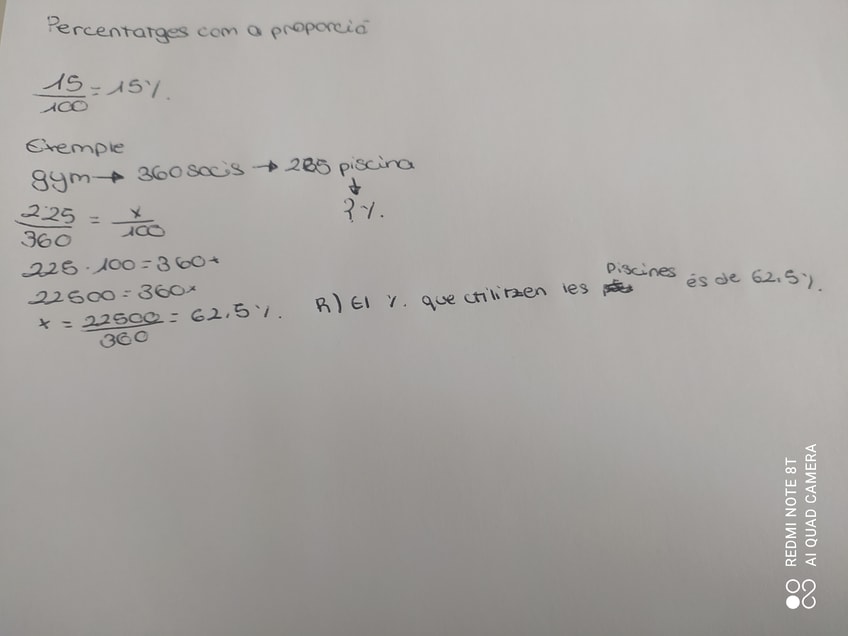 Percentatges com a proporció
15/100 = 15%.
Exemple
gym → 360 socis → 225 piscina
↓
? %.
225/360 = x/100
225 · 100 = 360x
22500 = 360x
x = 22500/360 = 62,5%. R) El %. que utilitzen les piscines és de 62,5%.
REDMI NOTE 8T
AI QUAD CAMERA